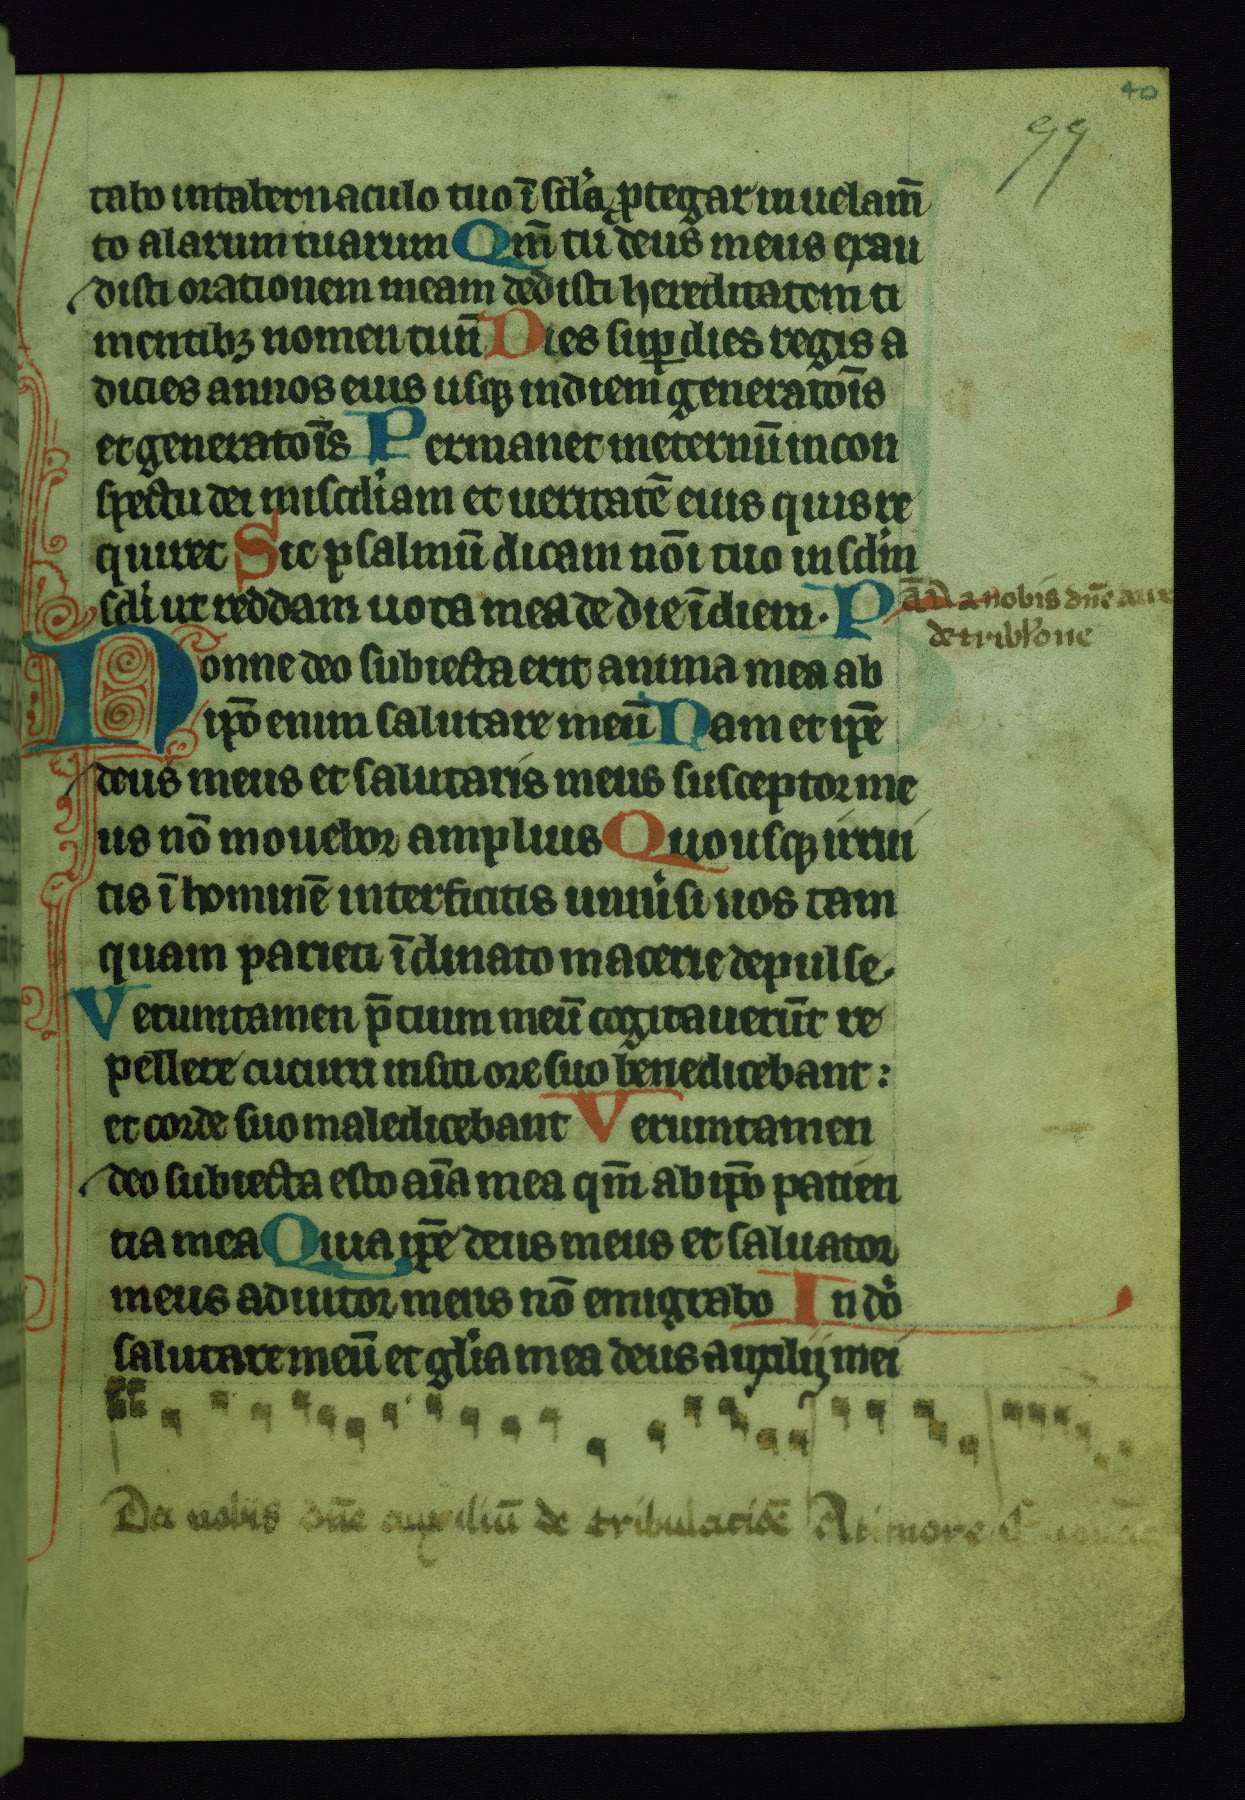 40
99
tabo in tabernaculo tuo ī scl̄a ꝓtegar in uelam̄
to alarum tuarum Qm̄ tu deus meus exau
disti orationem meam dedisti hereditatem ti
mentibꝫ nomen tuū Dies suꝑ dies regis a
dicies annos eius usqꝫ in diem generatōis
et generatōis Permanet in eternū in con
spectu dei misc̄diam et ueritatē eius quis re
quiret Sic psalmū dicam nōi tuo in sc̄lm
sc̄li ut reddam uota mea de die ī diem. P
ā Da nobis dn̄e aux
de tribl̄one
Nonne deo subiecta erit anima mea ab
ip̄o enim salutare meū Nam et ip̄e
deus meus et salutaris meus susceptor me
us nō mouebor amplius Quousqꝫ irrui
tis ī hominē interficitis uniūsi uos tam
quam parieti īclinato macerie depulse.
Verumtamen p̄cium meū cogitauerūt re
pellere cucurri in siti ore suo benedicebant :
et corde suo maledicebant Verumtamen
deo subiecta esto aīa mea qm̄ ab ip̄o patien
tia mea Quia ip̄e deus meus et saluator
meus adiutor meus nō emigrabo In dō
salutare meū et glīa mea deus auxilij mei
Da nobis dn̄e auxiliū de tribulaciōe A timore